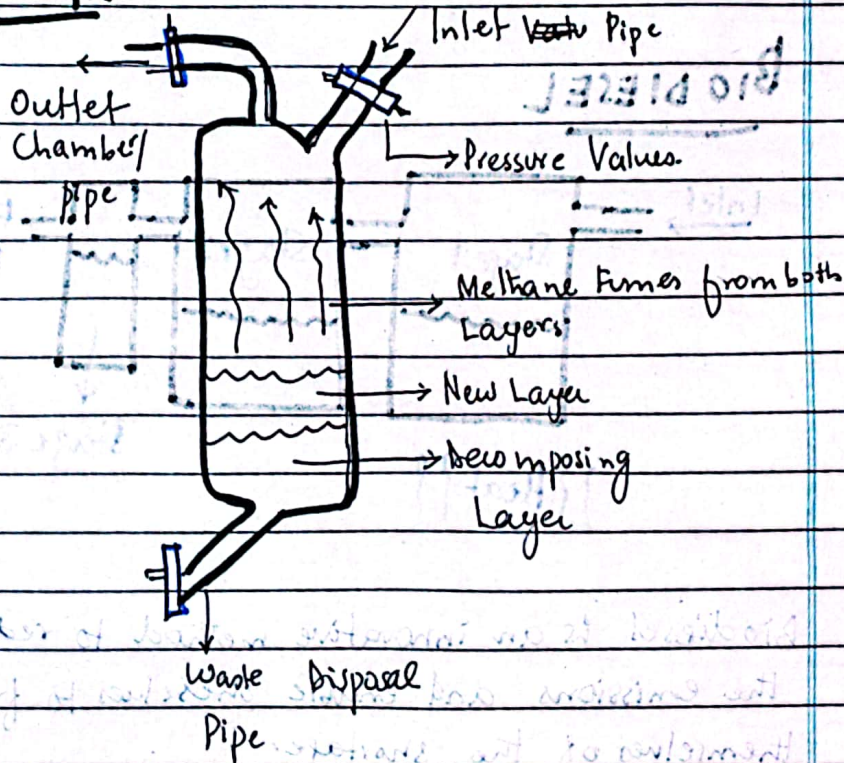 Inlet Pipe
BIO DIESEL
Outlet
Chamber/
pipe
Pressure Values.
Methane Fumes from both
Layers
New Layer
Decomposing
Layer
Waste Disposal
Pipe